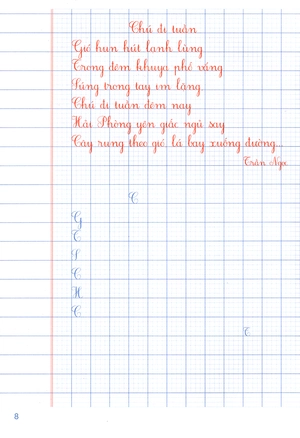 Chú đi tuần
Gió hun hút lạnh lùng
Trong đêm khuya phố vắng
Súng trong tay im lặng
Chú đi tuần đêm nay
Hải Phòng yên giấc ngủ say
Cây rung theo gió lá bay xuống đường...
Trần Ngọc
C
G
T
S
C
H
C
T
8